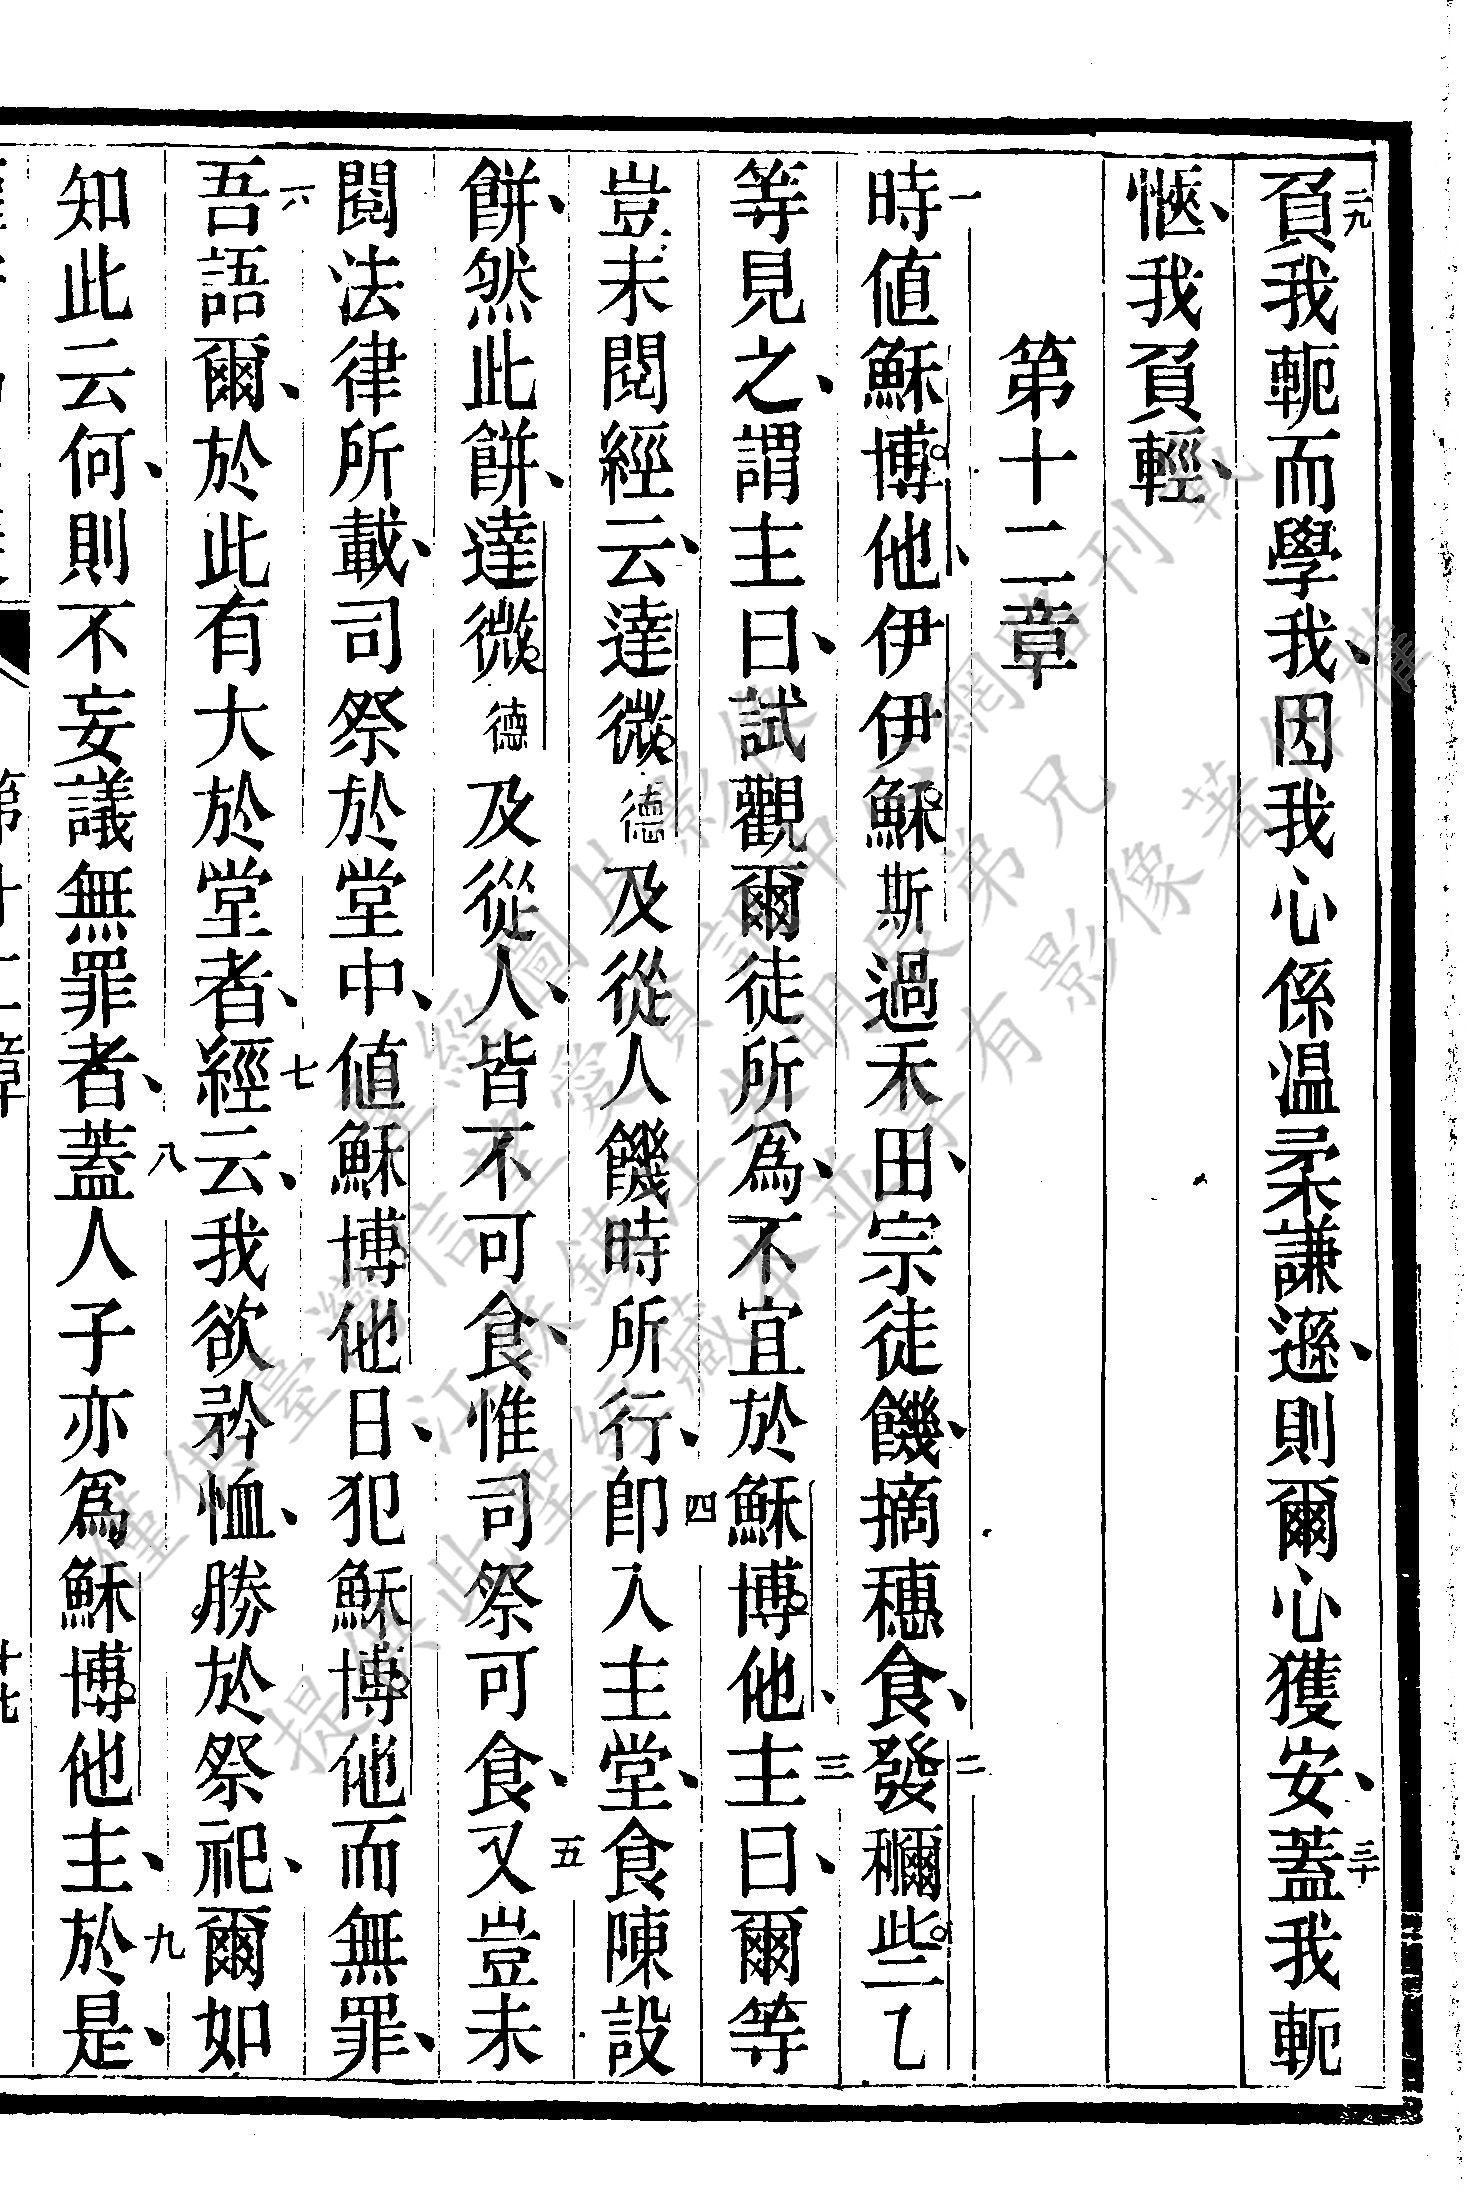 負我軛而學我、因我心係温柔謙遜、則爾心獲安、蓋我軛
二九
三十
愜、我負輕、
第十二章
時値穌博他、伊伊穌斯過禾田、宗徒饑、摘穗食、發穪些二乙
一
二
等見之、謂主曰、試觀爾徒所爲、不宜於穌博他、主曰、爾等
三
豈未閱經云、達微德及從人饑時所行、卽入主堂、食陳設
四
餅、然此餅、達微德及從人、皆不可食、惟司祭可食、又豈未
五
閱法律所載、司祭於堂中、値穌博他日、犯穌博他而無罪、
吾語爾、於此有大於堂者、經云、我欲矜恤、勝於祭祀、爾如
六
七
知此云何、則不妄議無罪者、蓋人子亦爲穌博他主、於是、
八
九
第十二章
僅供臺灣信望愛
江蘇鎮江朱明辰弟兄
提供此聖經